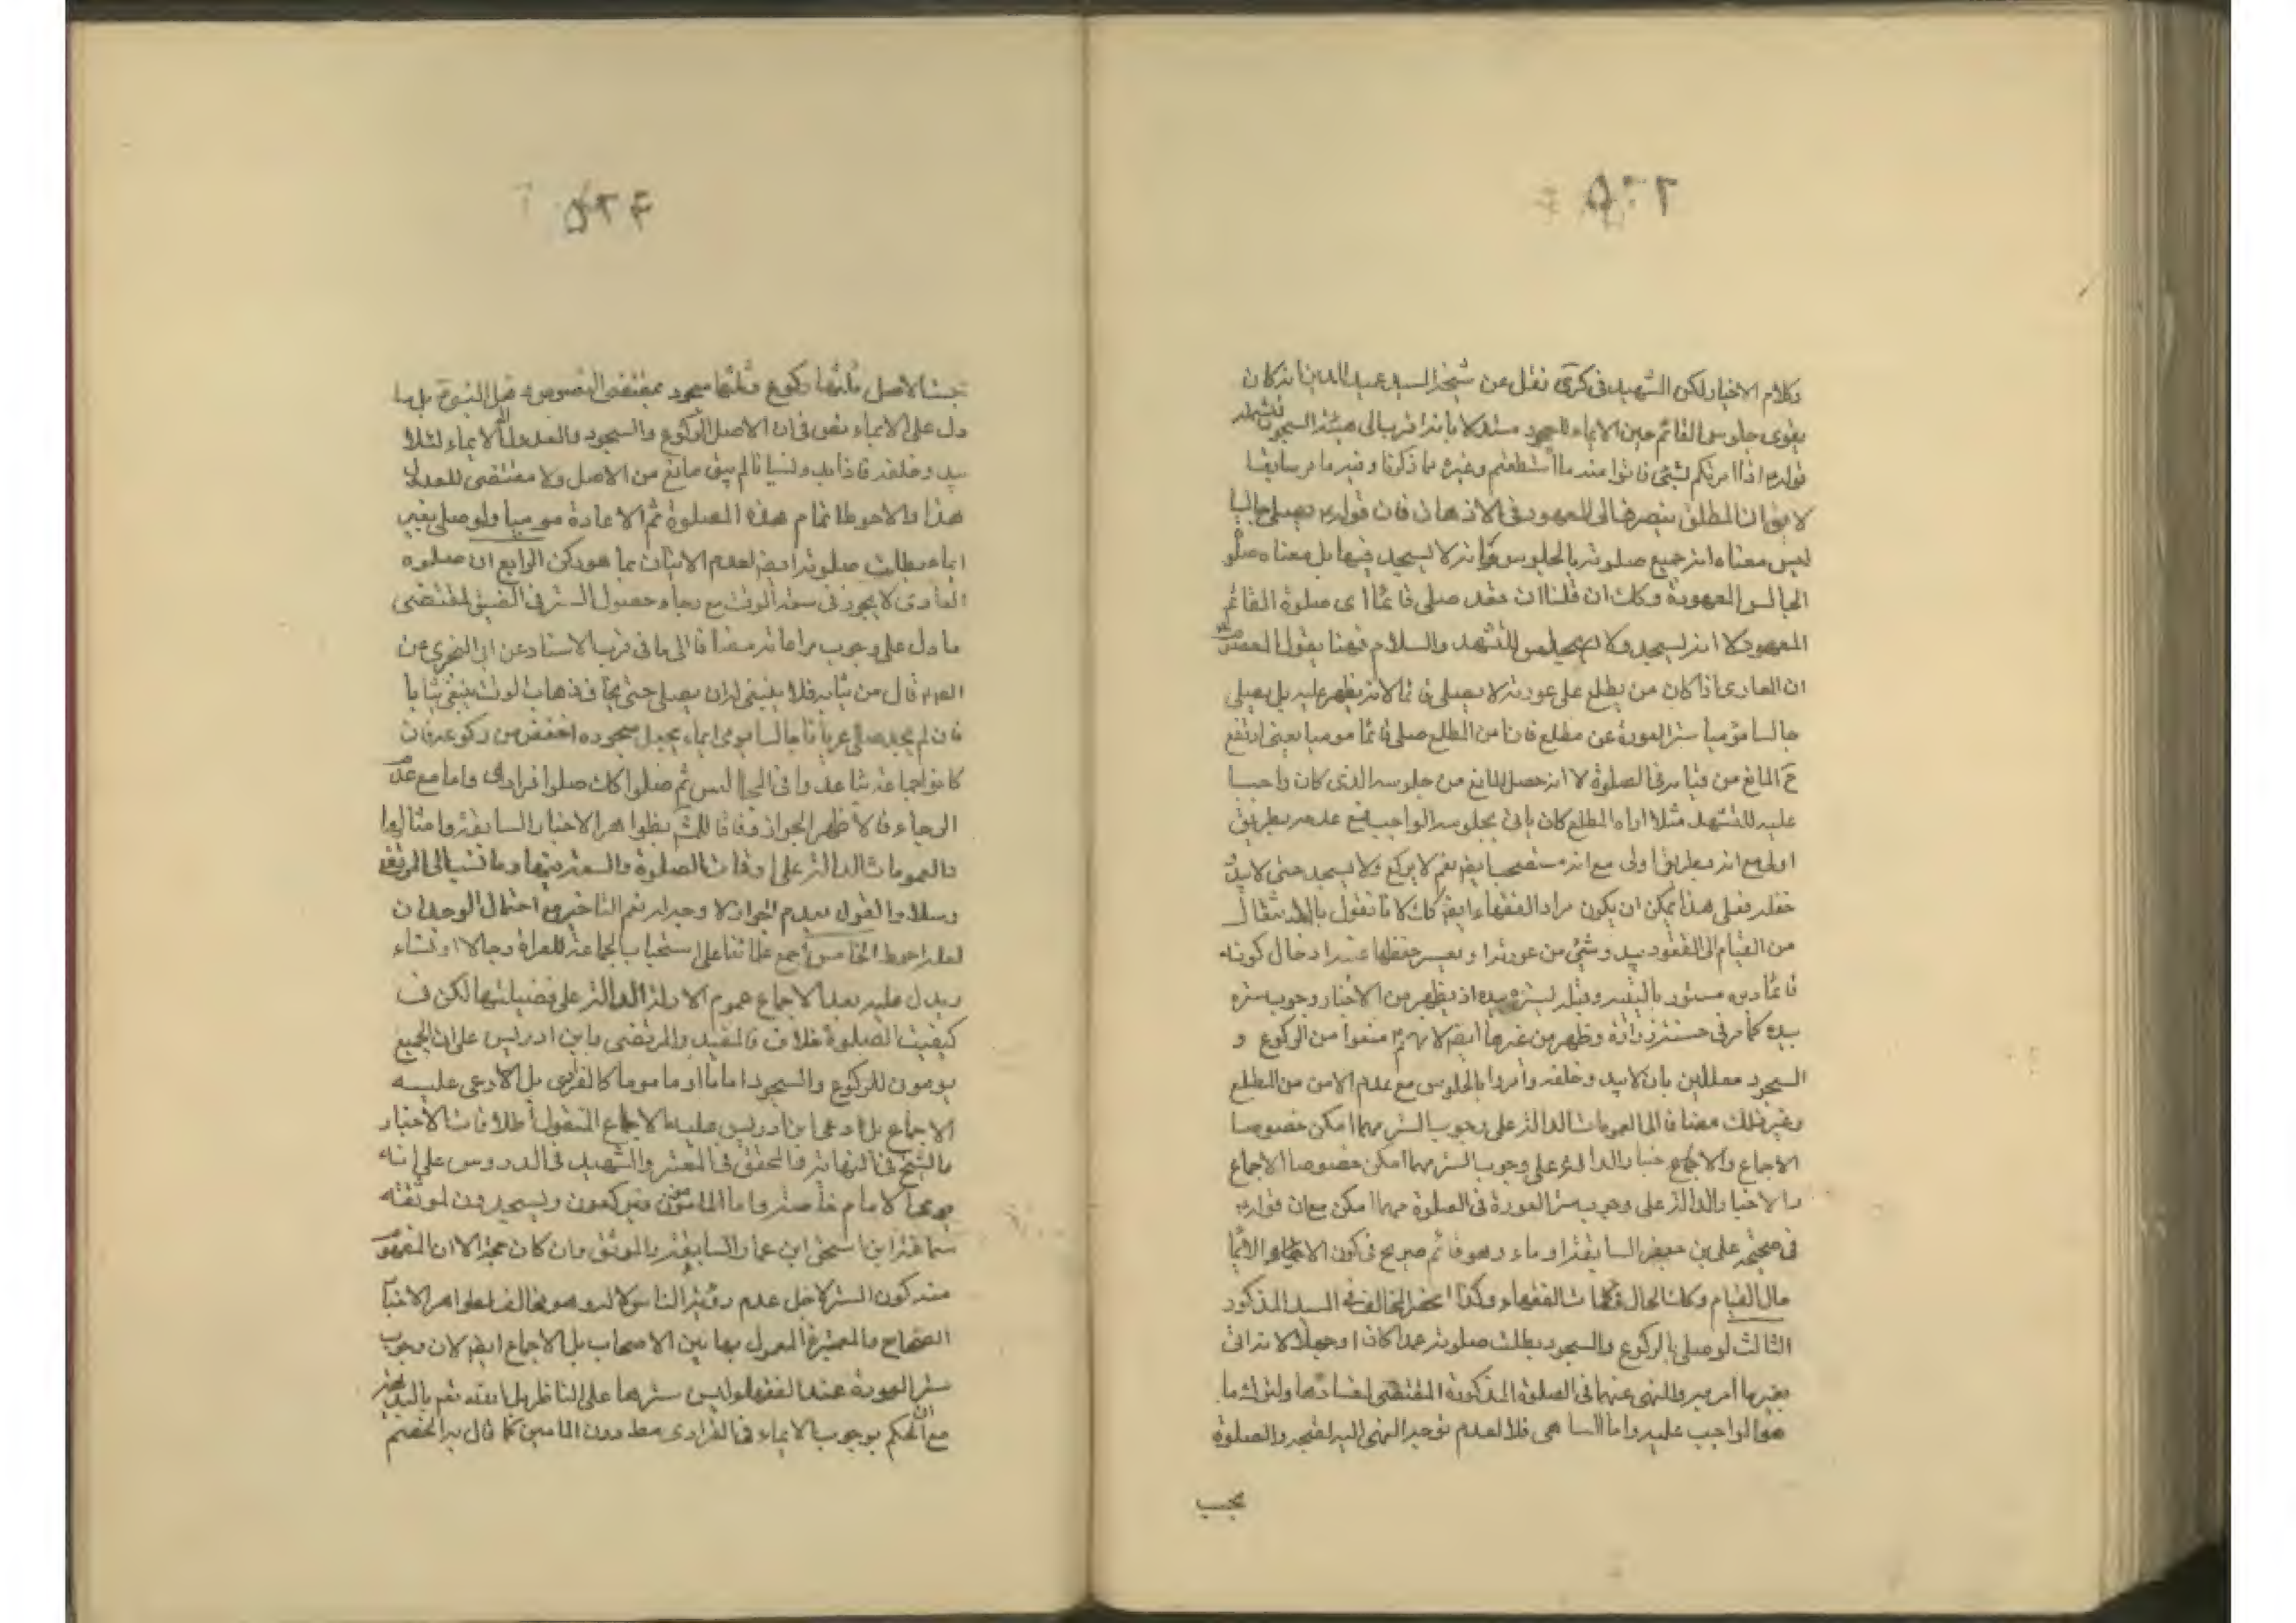 وكلام الاخيار لكن الشهيد في كرى نقل عن شيخه السيد عميد الدين انه كان
يقوى جلوس القائم حين الايماء للسجود مستدلا بانه اقرب الى هيئة السجود
قوله اذا امرتكم بشئ فاتوا منه ما استطعتم وغيره مما ذكرنا وفيه ما مر سابقا
ان المطلق ينصرف الى المعهود في الاذهان فان قوله يصلي جالسا
ليس معناه انه جميع صلوته بالجلوس وانه لا يسجد فيها بل معناه صلو
الجالس المعهودة وكك ان قلنا ان فقد صلى قائما اى صلوة القائم
المعهود لا انه لا يسجد ولا يجلس للتشهد والسلام فهنا يقول المعصوم
ان العارى اذا كان من يطلع على عورته لا يصلى قائما لانه يظهر عليه بل يصلى
جالسا مؤميا ستر العورة عن مطلع فان امن المطلع صلى قائما موميا يعنى ارتفع
ح المانع من قيامه في الصلوة لا انه حصل المانع من جلوسه الذى كان واجبا
عليه للتشهد مثلا اراه المطلع كان ياتى بجلوسه الواجب فمع عدمه بطريق
اولى مع انه بطريق اولى مع انه مستصحب ايضا نعم لا يركع ولا يسجد حتى لا يبدو
خلفه فعلى هذا يمكن ان يكون مراد الفقهاء ايضا كك لا نا نقول بالانتقال
من القيام الى القعود يبدو شئ من عورته او يعسر حفظها عند ادخال كونه
قائما دبره مستور بالاليتين وقبله يستره بيده اذ يظهر من الاخبار وجوب ستره
بيده كما مر في حسنة زرارة وظهر من غيرها ايضا لانهم منعوا من الركوع و
السجود معللين بان لا يبدو خلفه وامروا بالجلوس مع عدم الامن من المطلع
وغير ذلك مضافا الى العمومات الدالة على وجوب الستر مهما امكن خصوصا
الاجماع والاخبار الدالة على وجوب الستر مهما امكن خصوصا الاجماع
والاخبار الدالة على وجوب ستر العورة في الصلوة مهما امكن مع ان قوله
في صحيحة على بن جعفر السابقة او ماء وهو قائم صريح في كون الايماء
حال القيام وكك الحال في كلمات الفقهاء وكذا المخالف في السيد المذكور
الثالث لو صلى بالركوع والسجود بطلت صلوته عمدا كان او جهلا لانه اتى
بغير ما امر به والنهى عنهما في الصلوة المذكورة المقتضى لفسادها ولترك ما
هو الواجب عليه واما الساهى فلا لعدم توجه النهى اليه لقبحه والصلوة
يجب
دل على الايماء نص في ان الاصل الركوع والسجود والعدول الى الايماء لئلا
يبدو خلفه فاذا بدا ولسيا نا لم يبق مانع من الاصل ولا مقتضى للعدول
هذا والاحوط اتمام هذه الصلوة ثم الاعادة موميا ولو صلى بغير
ايماء بطلت صلوته ايضا لعدم الاتيان بما هو ركن الرابع ان صلوة
العارى لا يجوز في سعة الوقت مع رجاء حصول الستر في الضيق لمقتضى
ما دل على وجوب مراعاته مضافا الى ما في قرب الاسناد عن ابى البخترى عن
قال من ثيابه فلا ينبغى له ان يصلى حتى يخاف ذهاب الوقت يبتغى ثيابا
فان لم يجد صلى عريانا جالسا يومى ايماء يجعل سجوده اخفض من ركوعه فان
كانوا جماعة تباعدوا في المجالس ثم صلوا كك صلوا فرادى واما مع عدم
الرجاء فالاظهر الجواز وفاقا للشيخ بظواهر الاخبار السابقة وامثالها
والعمومات الدالة على اوقات الصلوة والسعة فيها وما نسب الى المرتضى
وسلار والقول بعدم الجواز لا وجه له نعم التاخير مع احتمال الوجدان
لعله احوط الخامس اجمع علمائنا على استحباب الجماعة للعراة رجالا او نساء
ويدل عليه بعد الاجماع عموم الادلة الدالة على فضيلتها لكن في
كيفيت الصلوة خلاف فالمفيد والمرتضى وابن ادريس على ان الجميع
يومون للركوع والسجود اماما او ماموما كالفرادى بل الادعى عليه
الاجماع بل ادعى ابن ادريس عليه الاجماع المنقول اطلاقات الاخبار
والشيخ في النهاية والمحقق في المعتبر والشهيد في الدروس على انه
يومى الامام خاصة واما المامومون فيركعون ويسجدون لموثقة
سماعة ابن اسحق ابن عمار السابقة والموثق وان كان حجة الا ان
منه كون الستر لاجل عدم رؤية الناس لا له وهو مخالف لظواهر الاخبار
الصحاح والمعتبرة المعمول بها بين الاصحاب بل الاجماع ايضا لان وجوب
ستر العورة عند الفقهاء ليس سترها على الناظر بل
مع ان الحكم بوجوب الايماء في الفرادى مط دون المامين كما قال به الخصم